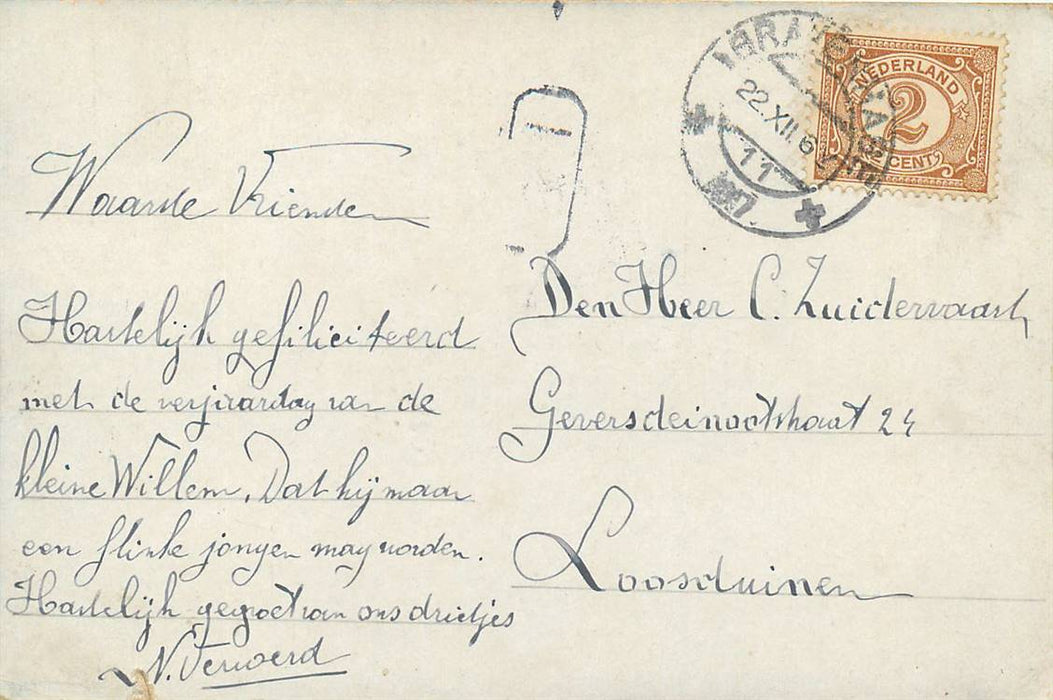 Waarde Vrienden
Hartelijk gefiliciteerd
met de verjaardag van de
kleine Willem. Dat hij maar
een flinke jongen mag worden.
Hartelijk gegroet van ons drietjes
N. Verwoerd
22.XII
11
NEDERLAND
2
CENT
Den Heer C. Zuidervaart
Geversdeinootstraat 24
Loosduinen